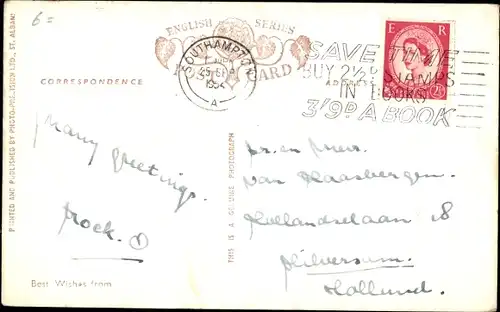 6=
ENGLISH SERIES
POST CARD
SOUTHAMPTON
1954
A
SAVE TIME
BUY 2½D STAMPS
IN BOOKS
3/9D A BOOK
E R
CORRESPONDENCE
ADDRESS
PRINTED AND PUBLISHED BY PHOTO-PRECISION LTD., ST. ALBANS
THIS IS A GENUINE PHOTOGRAPH
Many greetings.
Best Wishes from
Hollandselaan 18
Hilversum.
Holland.